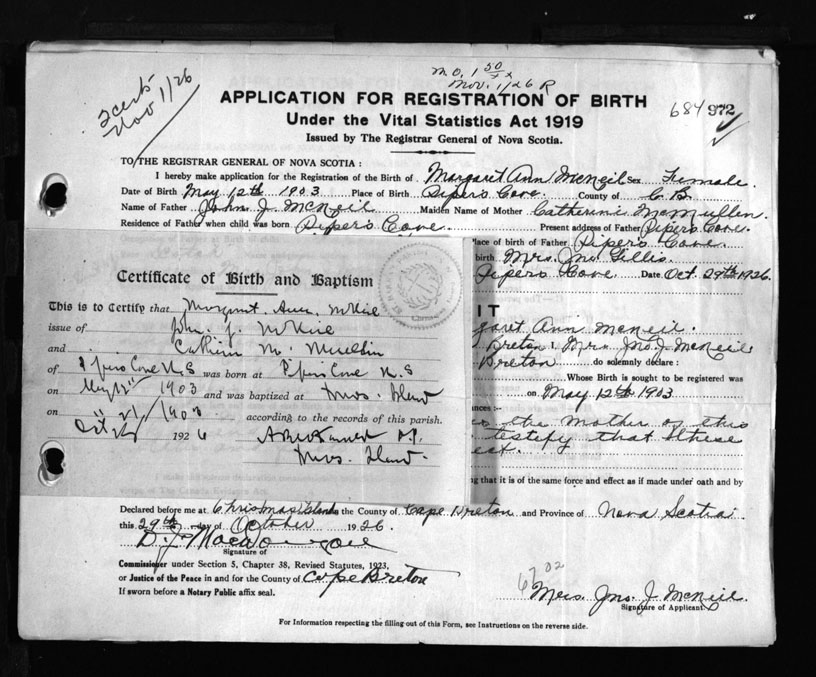 M.O. 1 50
Nov. 1/26 R
2 certs
Nov 1/26
684 972
APPLICATION FOR REGISTRATION OF BIRTH
Under the Vital Statistics Act 1919
Issued by The Registrar General of Nova Scotia.
TO THE REGISTRAR GENERAL OF NOVA SCOTIA :
I hereby make application for the Registration of the Birth of Margaret Ann McNeil Sex Female.
Date of Birth May 12th 1903 Place of Birth Pipers Cove. County of C.B.
Name of Father John J. McNeil Maiden Name of Mother Catherine McMullen.
Residence of Father when child was born Pipers Cove. Present address of Father Pipers Cove.
Place of birth of Father Pipers Cove.
birth Mrs. Jno. Gillis.
Pipers Cove. Date Oct. 29th 1926.
Certificate of Birth and Baptism
This is to Certify that Margaret Ann McNeil
issue of John J. McNeil
and Catherine
of Pipers Cove N.S was born at Pipers Cove N.S
on May 12th 1903 and was baptized at
on 1903 according to the records of this parish.
Oct 1926
P.P.
IT
garet Ann McNeil.
Breton: Mrs Jno. J. McNeil
Breton do solemnly declare :
Whose Birth is sought to be registered was
on May 12th 1903
nces :—
the Mother of this
testify that these
ng that it is of the same force and effect as if made under oath and by
Declared before me at Christmas Island in the County of Cape Breton and Province of Nova Scotia.
this 29th day of October 1926.
Signature of
Commissioner under Section 5, Chapter 38, Revised Statutes, 1923,
or Justice of the Peace in and for the County of Cape Breton
If sworn before a Notary Public affix seal.
6702
Mrs. Jno. J. McNeil.
Signature of Applicant.
For Information respecting the filling out of this Form, see Instructions on the reverse side.